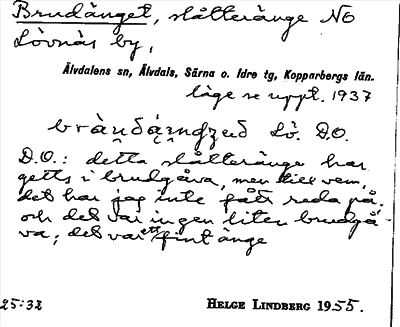 Brudänget, slåtteränge NO
Lövnäs by,
Älvdalens sn, Älvdals, Särna o. Idre tg, Kopparbergs län.
läge se uppt. 1937
Lö. D.O.
D.O.: detta slåtteränge har
getts i brudgåva, men till vem,
det har jag inte fått reda på,
och det var ingen liten brudgå-
va; det var ett fint änge
25:32 HELGE LINDBERG 1955.